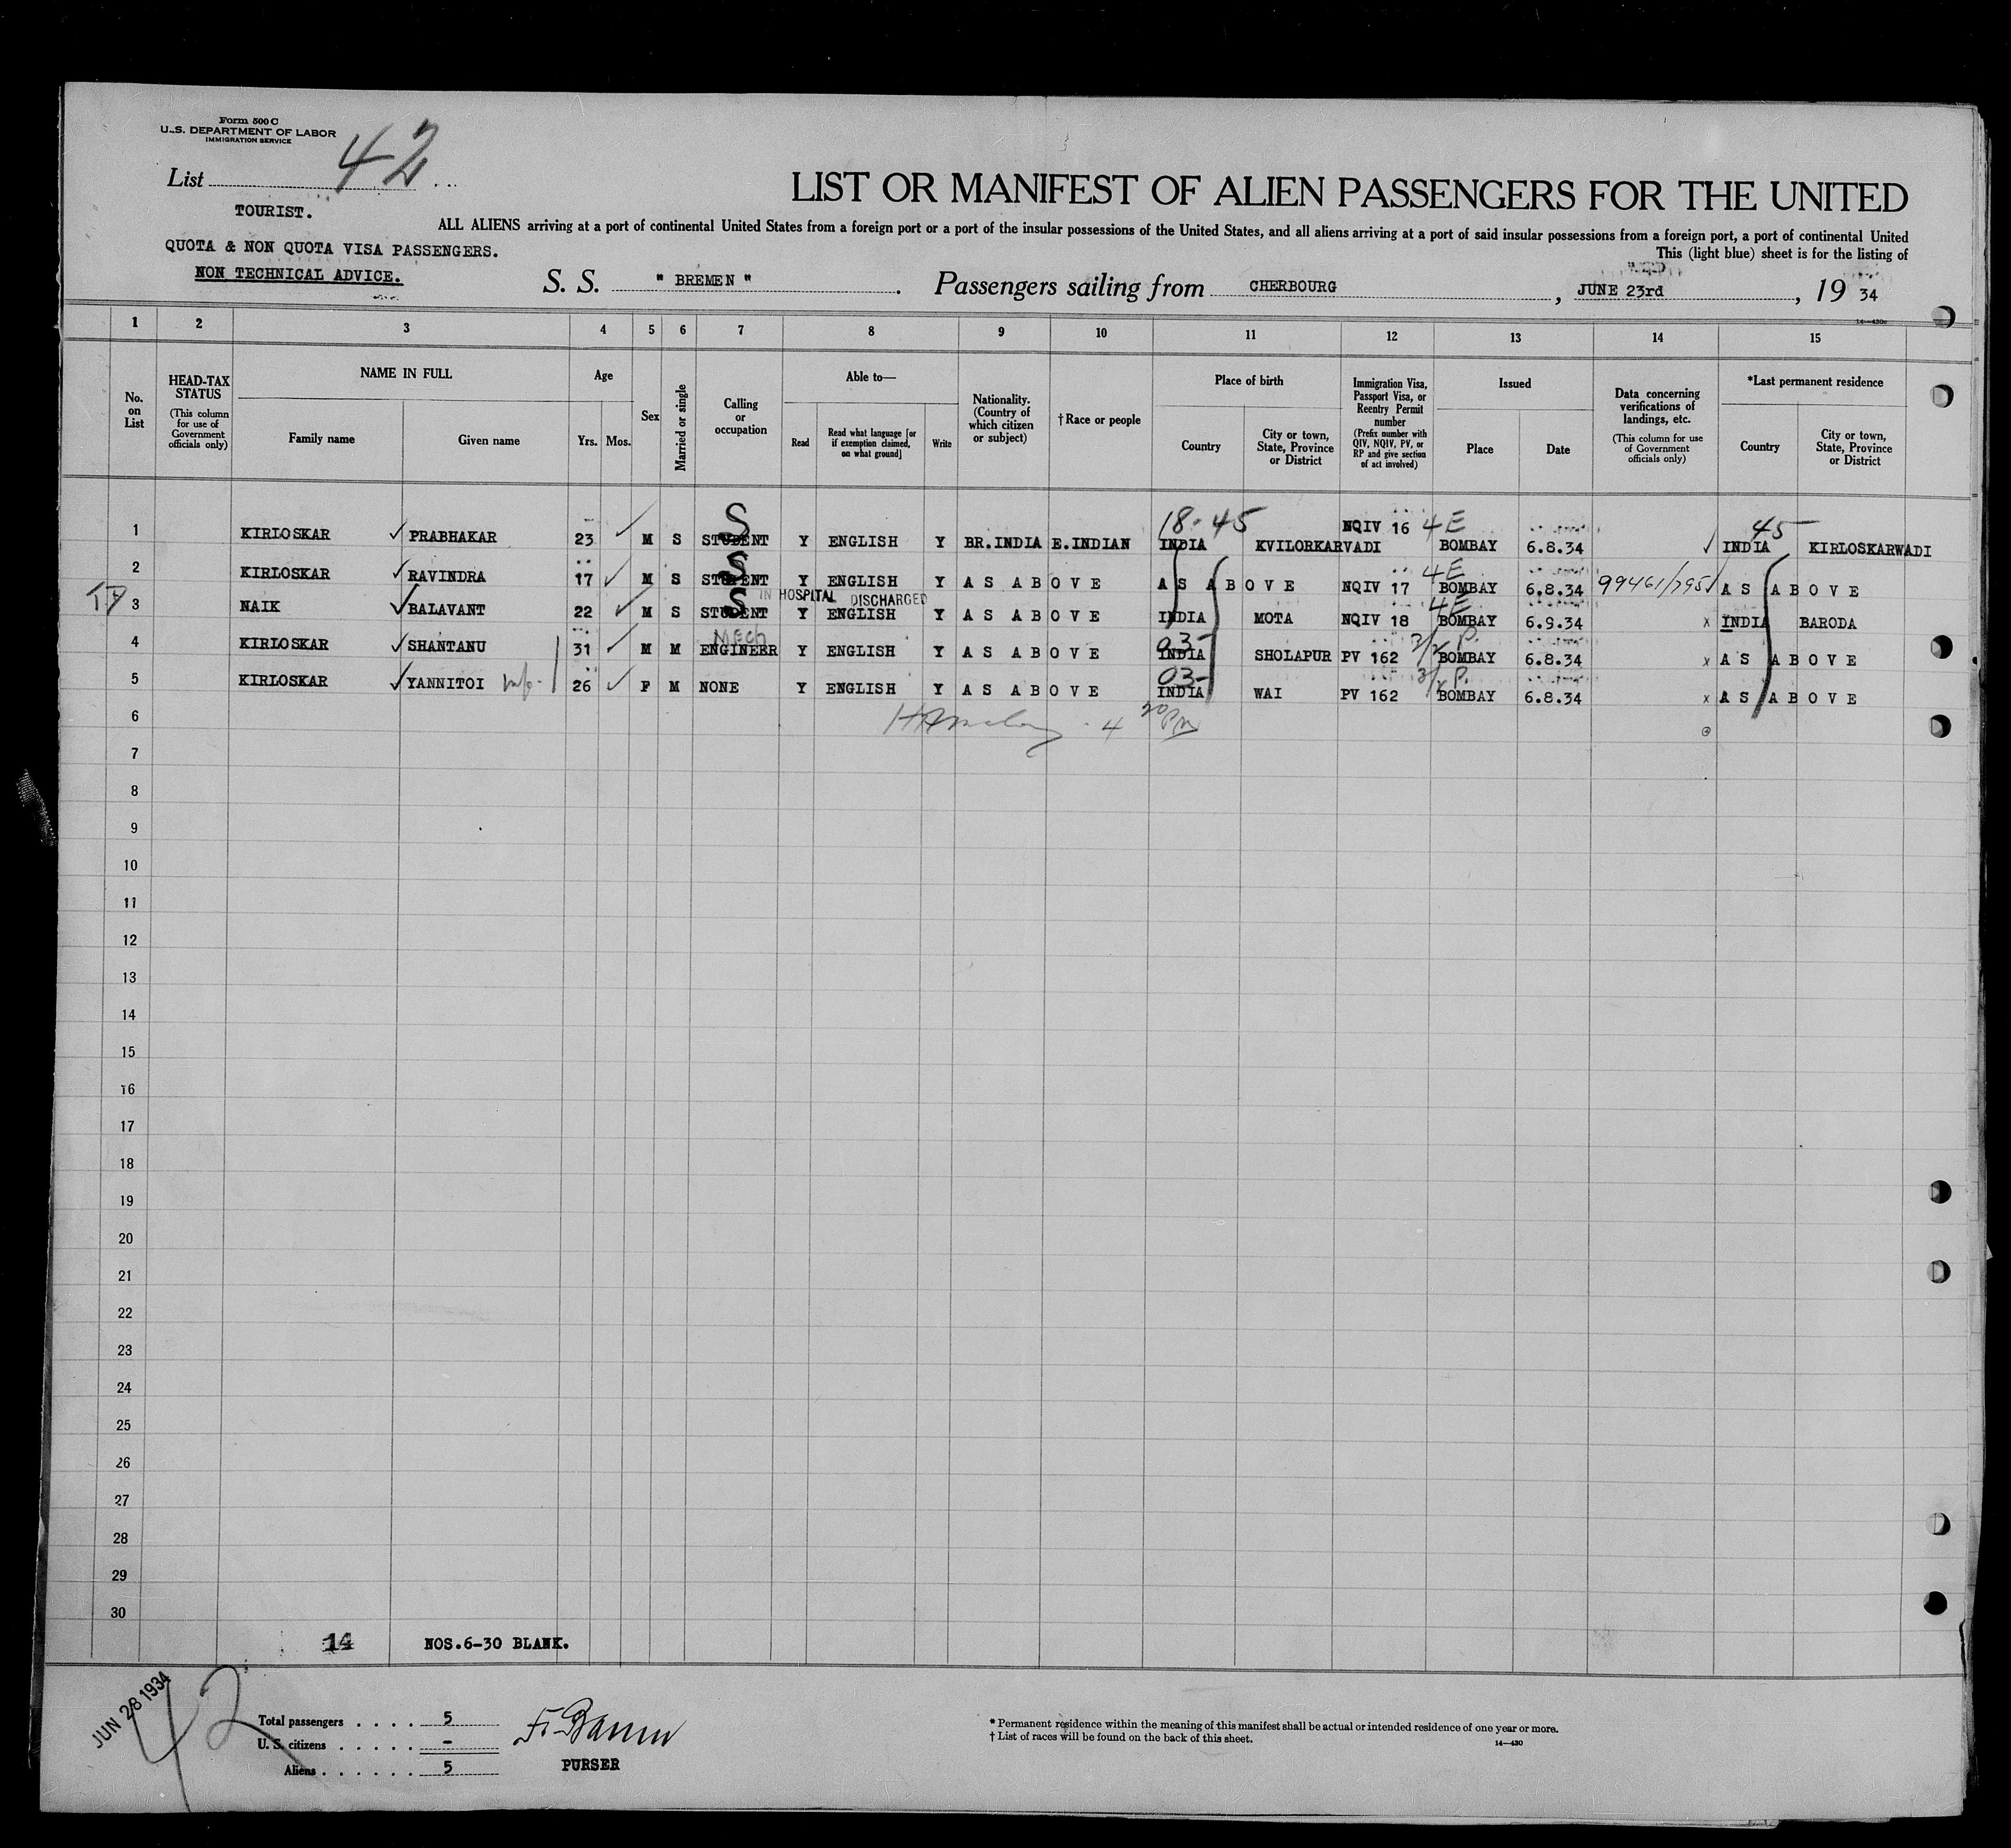 Form 500 C
U.S. DEPARTMENT OF LABOR
IMMIGRATION SERVICE
List 42
TOURIST.
QUOTA & NON QUOTA VISA PASSENGERS.
NON TECHNICAL ADVICE.
LIST OR MANIFEST OF ALIEN PASSENGERS FOR THE UNITED
ALL ALIENS arriving at a port of continental United States from a foreign port or a port of the insular possessions of the United States, and all aliens arriving at a port of said insular possessions from a foreign port, a port of continental United
This (light blue) sheet is for the listing of
S. S. " BREMEN ". Passengers sailing from CHERBOURG, JUNE 23rd, 19 34
14—430c
1 2 3 4 5 6 7 8 9 10 11 12 13 14 15
No. on List
HEAD-TAX STATUS (This column for use of Government officials only)
NAME IN FULL Family name Given name
Age Yrs. Mos.
Sex
Married or single
Calling or occupation
Able to— Read Read what language [or if exemption claimed, on what ground] Write
Nationality. (Country of which citizen or subject)
†Race or people
Place of birth Country City or town, State, Province or District
Immigration Visa, Passport Visa, or Reentry Permit number (Prefix number with QIV, NQIV, PV, or RP and give section of act involved)
Issued Place Date
Data concerning verifications of landings, etc. (This column for use of Government officials only)
*Last permanent residence Country City or town, State, Province or District
S 18-45 4E 45
1 KIRLOSKAR PRABHAKAR 23 M S STUDENT Y ENGLISH Y BR.INDIA E.INDIAN INDIA KVILORKARVADI NQIV 16 BOMBAY 6.8.34 INDIA KIRLOSKARWADI
S 4E
2 KIRLOSKAR RAVINDRA 17 M S STUDENT Y ENGLISH Y AS ABOVE AS ABOVE NQIV 17 BOMBAY 6.8.34 99461/795 AS ABOVE
S IN HOSPITAL DISCHARGED 4E
3 NAIK BALAVANT 22 M S STUDENT Y ENGLISH Y AS ABOVE INDIA MOTA NQIV 18 BOMBAY 6.9.34 x INDIA BARODA
Mech 03- 3/2 P.
4 KIRLOSKAR SHANTANU 31 M M ENGINEER Y ENGLISH Y AS ABOVE INDIA SHOLAPUR PV 162 BOMBAY 6.8.34 x AS ABOVE
03- 3/2 P.
5 KIRLOSKAR YANNITOI 26 F M NONE Y ENGLISH Y AS ABOVE INDIA WAI PV 162 BOMBAY 6.8.34 x AS ABOVE
6
7
8
9
10
11
12
13
14
15
16
17
18
19
20
21
22
23
24
25
26
27
28
29
30
14 NOS.6-30 BLANK.
JUN 28 1934
42
Total passengers . . . . 5
U. S. citizens . . . . . -
Aliens . . . . . . 5
PURSER
* Permanent residence within the meaning of this manifest shall be actual or intended residence of one year or more.
† List of races will be found on the back of this sheet.
14—430